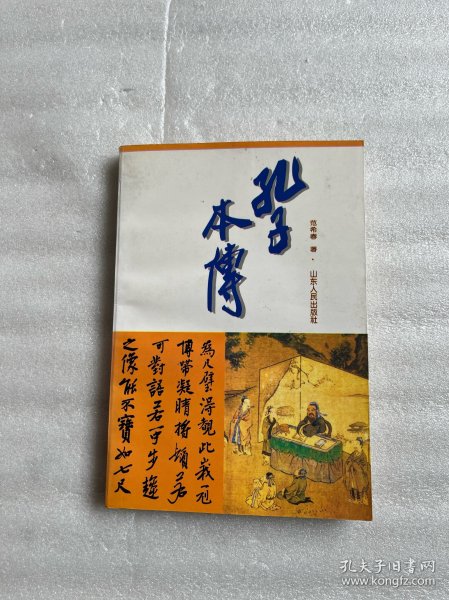 孔子
本傳
范希春 著 · 山东人民出版社
為尺璧得觀此峩冠
博帶凝睛若
可對語若可步趨
之像能不寶如七尺
孔夫子旧书网
www.kongfz.com